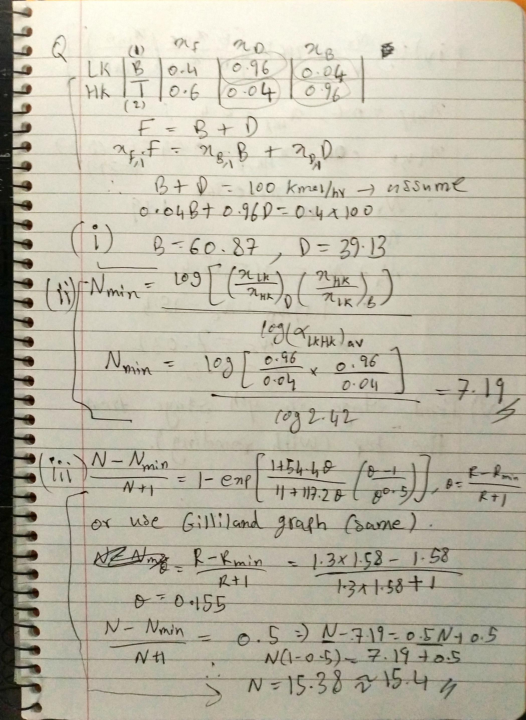 Q (1) x_F x_D x_B
LK | B | 0.4 | 0.96 | 0.04 |
HK | T | 0.6 | 0.04 | 0.96 |
(2)
F = B + D
x_F,1 F = x_B,1 B + x_D,1 D
∴ B + D = 100 kmol/hr → assume
0.04B + 0.96D = 0.4 x 100
(i) B = 60.87, D = 39.13
(ii) N_min = log[(x_LK/x_HK)_D (x_HK/x_LK)_B] / log(α_LKHK)_av
N_min = log[0.96/0.04 x 0.96/0.04] / log 2.42 = 7.19
(iii) (N - N_min)/(N+1) = 1 - exp[(1+54.4θ)/(11+117.2θ) ((θ-1)/θ^0.5)], θ = (R-R_min)/(R+1)
or use Gilliland graph (same).
θ = (R-R_min)/(R+1) = (1.3x1.58 - 1.58)/(1.3x1.58+1)
θ = 0.155
(N - N_min)/(N+1) = 0.5 ⇒ N - 7.19 = 0.5N + 0.5
∴ N(1-0.5) = 7.19 + 0.5
N = 15.38 ≈ 15.4